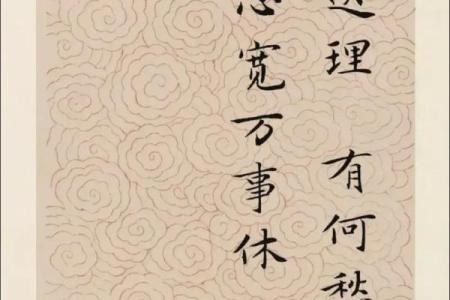 理 有何愁
宽万事休